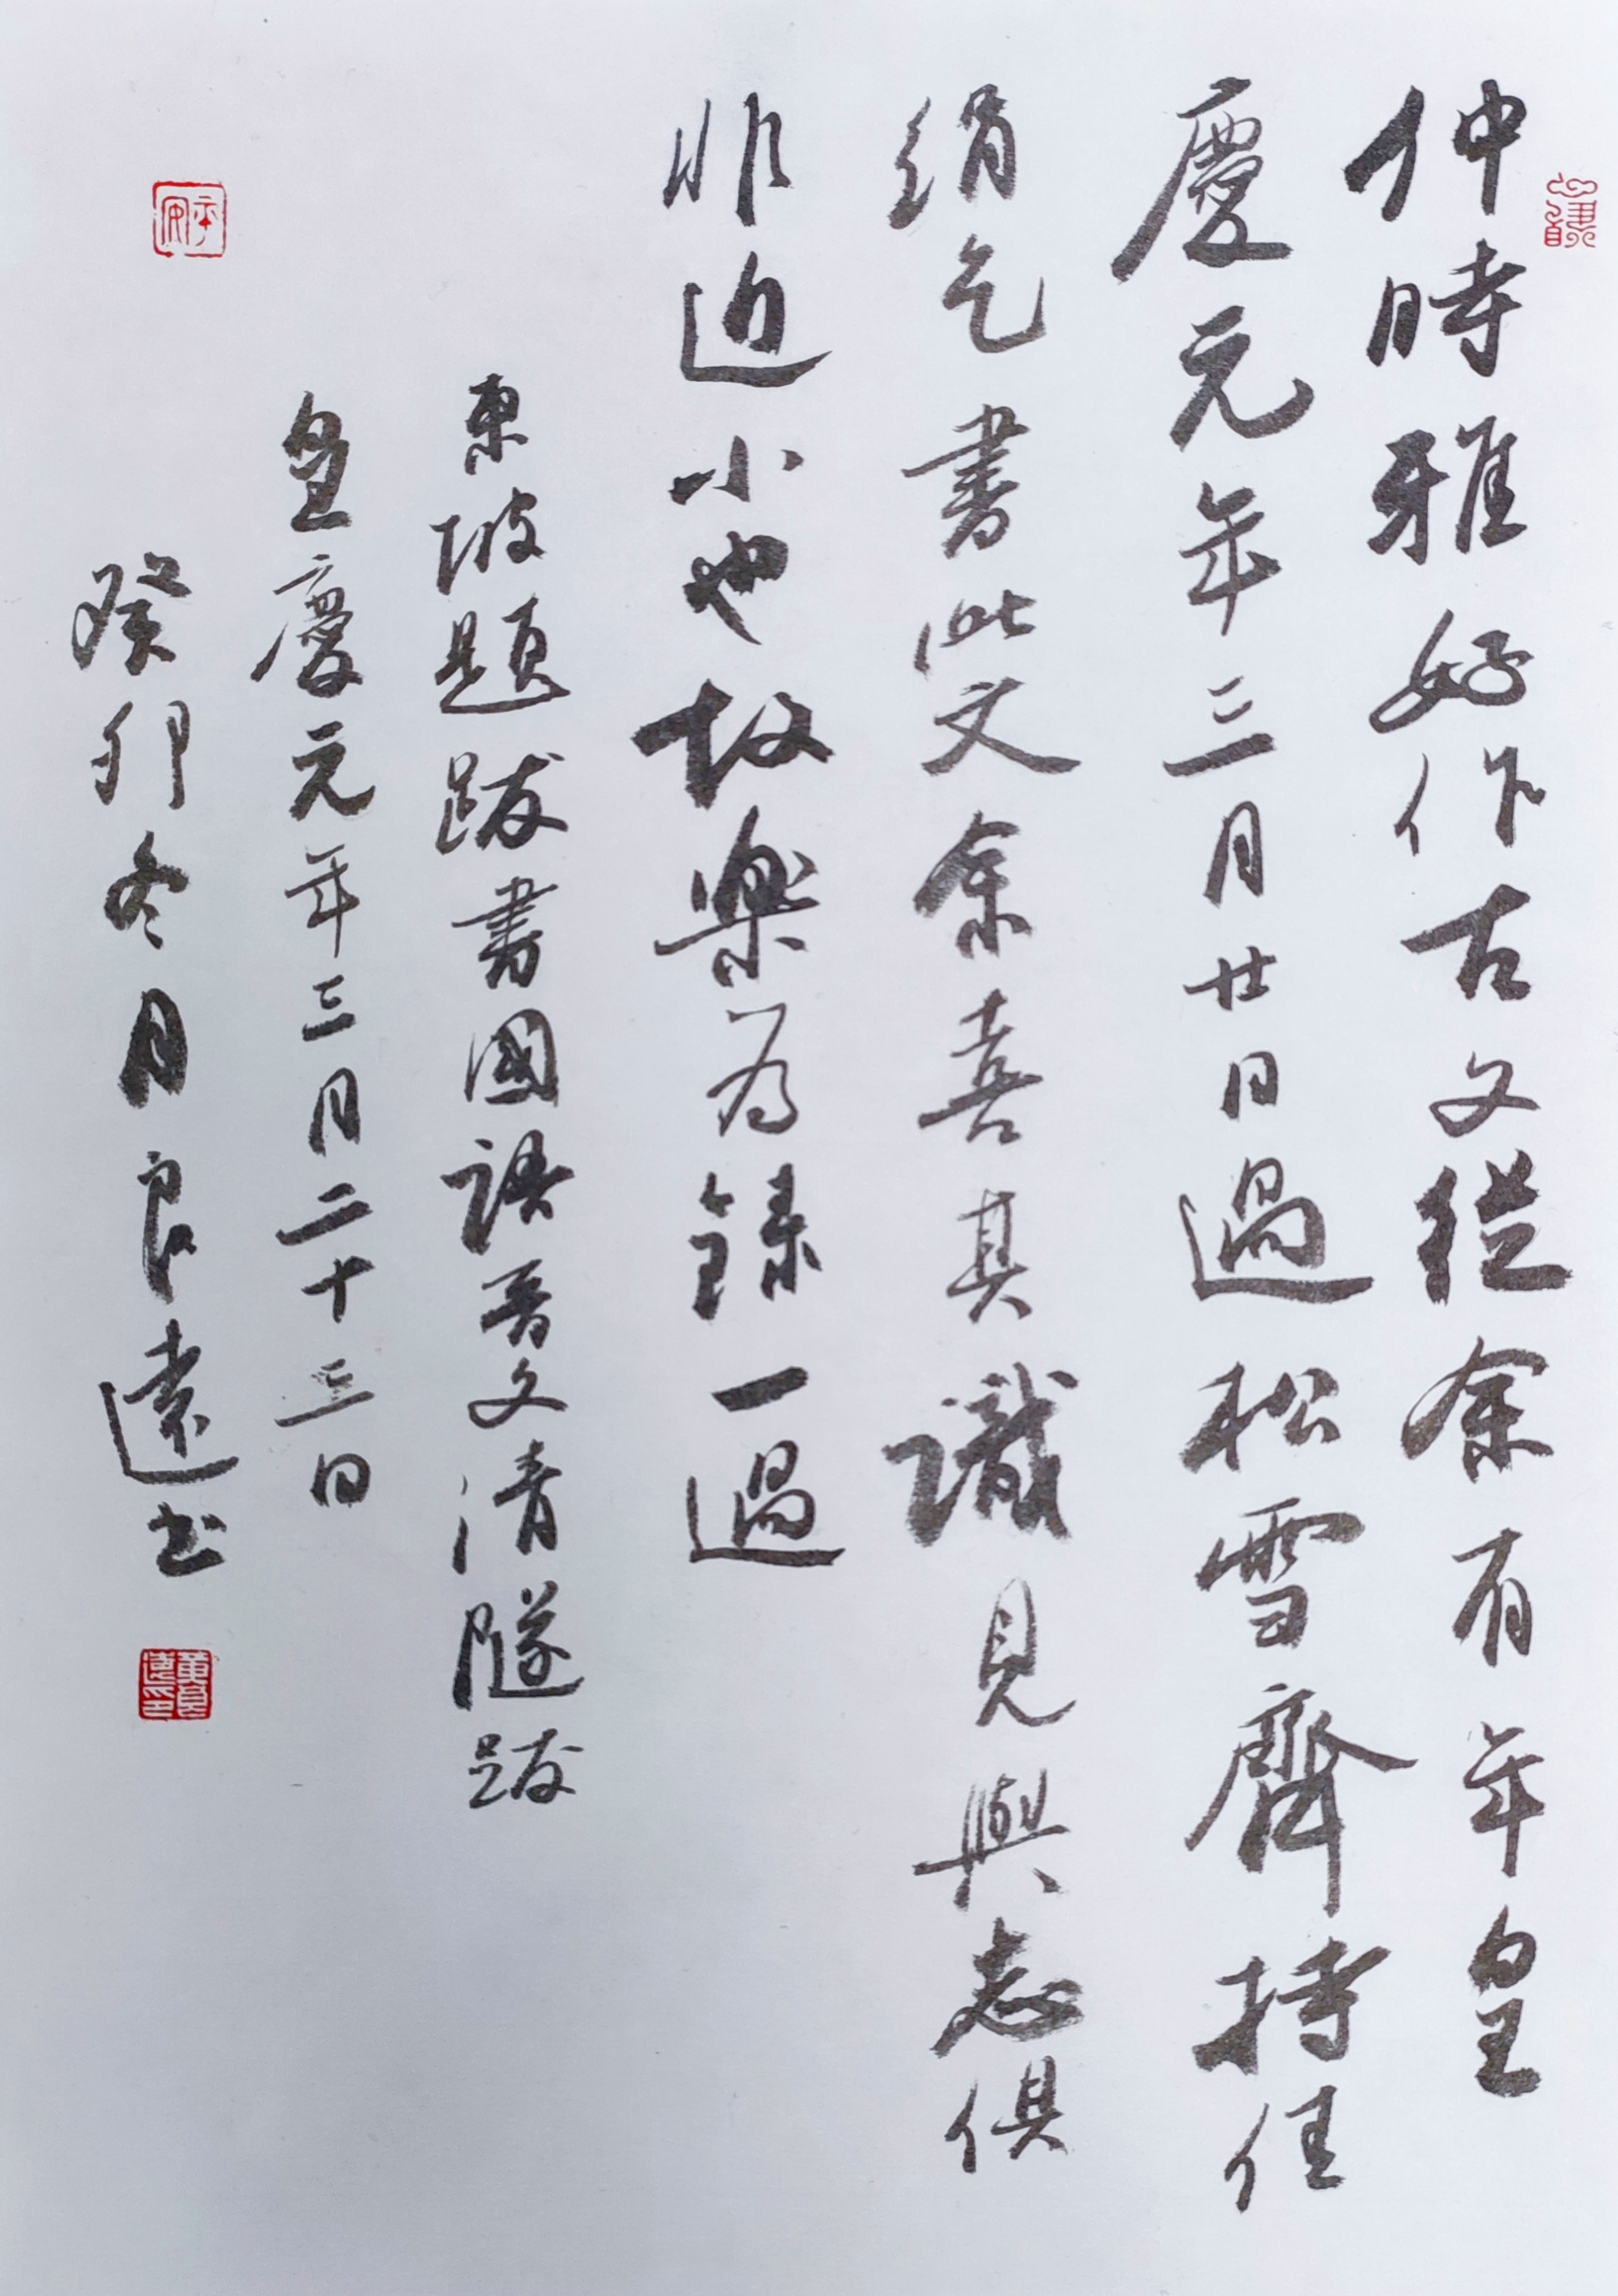 仲時雅好作古文從余有年皇
慶元年三月廿日過松雪齋持佳
絹乞書此文余喜其識見與志俱
非迫小也故樂為錄一過
東坡題跋書國語晉文請隧跋
皇慶元年三月二十三日
癸卯冬月良遠书
平安
黃良遠印